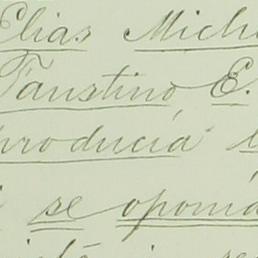 Elias Mich
Faustino E.
producia
se oponia